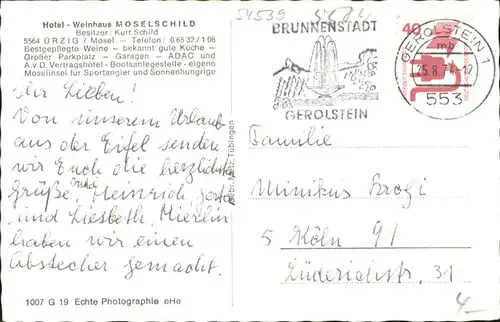 Hotel - Weinhaus MOSELSCHILD
Besitzer: Kurt Schild
5564 ÜRZIG / Mosel - Telefon: 0 65 32 / 1 06
Bestgepflegte Weine - bekannt gute Küche -
Großer Parkplatz - Garagen - ADAC und
A.v.D. Vertragshotel - Bootsanlegestelle - eigene
Moselinsel für Sportangler und Sonnenhungrige
Ihr Lieben!
Von unserem Urlaub
aus der Eifel senden
wir Euch die herzlichsten
Grüße, Heinrich,
und Liesbeth.
haben wir einen
Abstecher gemacht.
1007 G 19 Echte Photographie eHe
Gebr. Metz, Tübingen
54539
BRUNNENSTADT
GEROLSTEIN
40
GEROLSTEIN 1
mb
553
Familie
Minikus
5 Köln 91
31
4.-